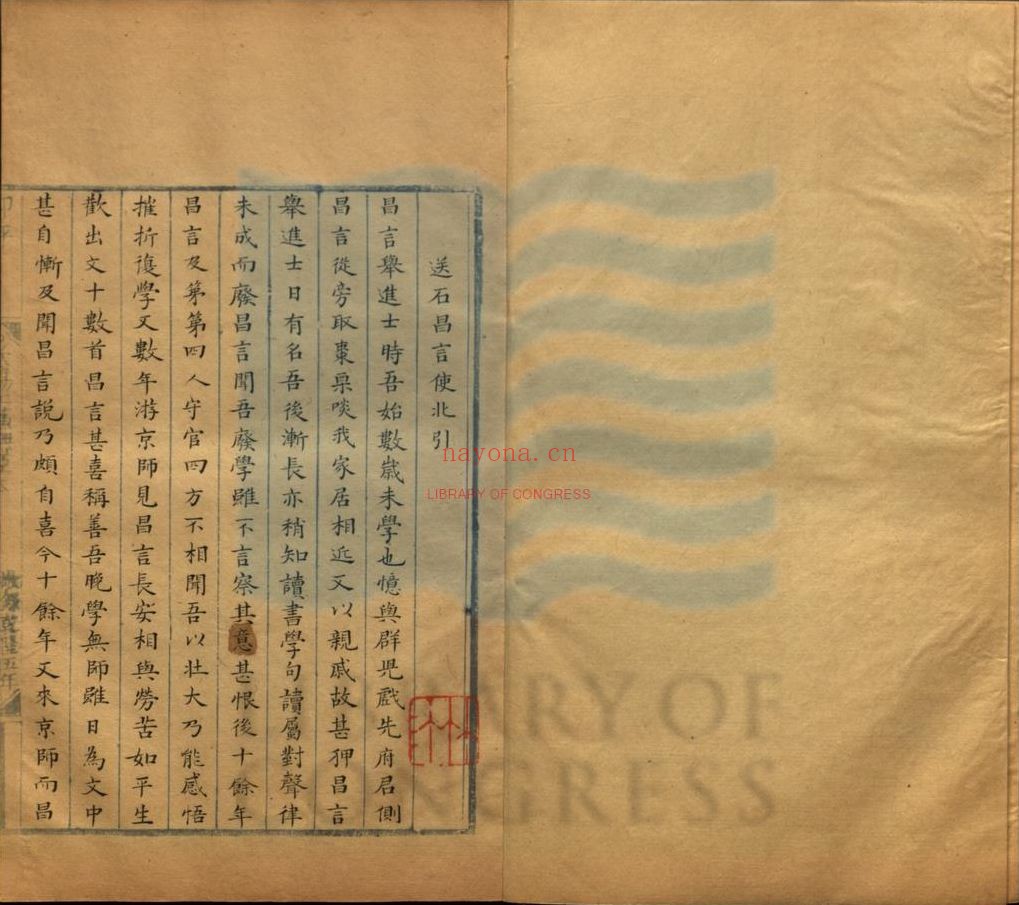 送石昌言使北引
昌言舉進士時吾始數歲未學也憶與群兒戲先府君側
昌言從旁取棗栗啖我家居相近又以親戚故甚狎昌言
舉進士日有名吾後漸長亦稍知讀書學句讀屬對聲律
未成而廢昌言聞吾廢學雖不言察其意甚恨後十餘年
昌言及第第四人守官四方不相聞吾以壯大乃能感悟
摧折復學又數年游京師見昌言長安相與勞苦如平生
歡出文十數首昌言甚喜稱善吾晚學無師雖日為文中
甚自慚及聞昌言說乃頗自喜今十餘年又來京師而昌
nayona.cn
LIBRARY OF CONGRESS
LIBRARY OF
CONGRESS